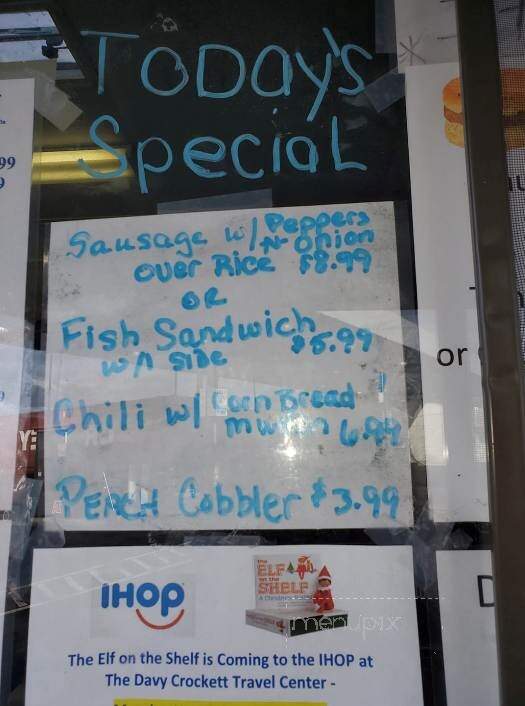 Today's
Special
Sausage w/ Peppers
N Onion
over Rice $8.99
or
Fish Sandwich
w/A side $5.99
Chili w/ Corn Bread
muffin 6.99
Peach Cobbler $3.99
99
or
IHOP
the
ELF
on the
SHELF
menupix
The Elf on the Shelf is Coming to the IHOP at
The Davy Crockett Travel Center -